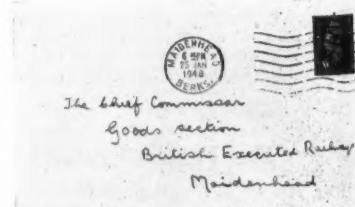 MAIDENHEAD
6 PM
25 JAN
1948
BERKS.
The Chief Commissar
Goods section
British Executed Railway
Maidenhead